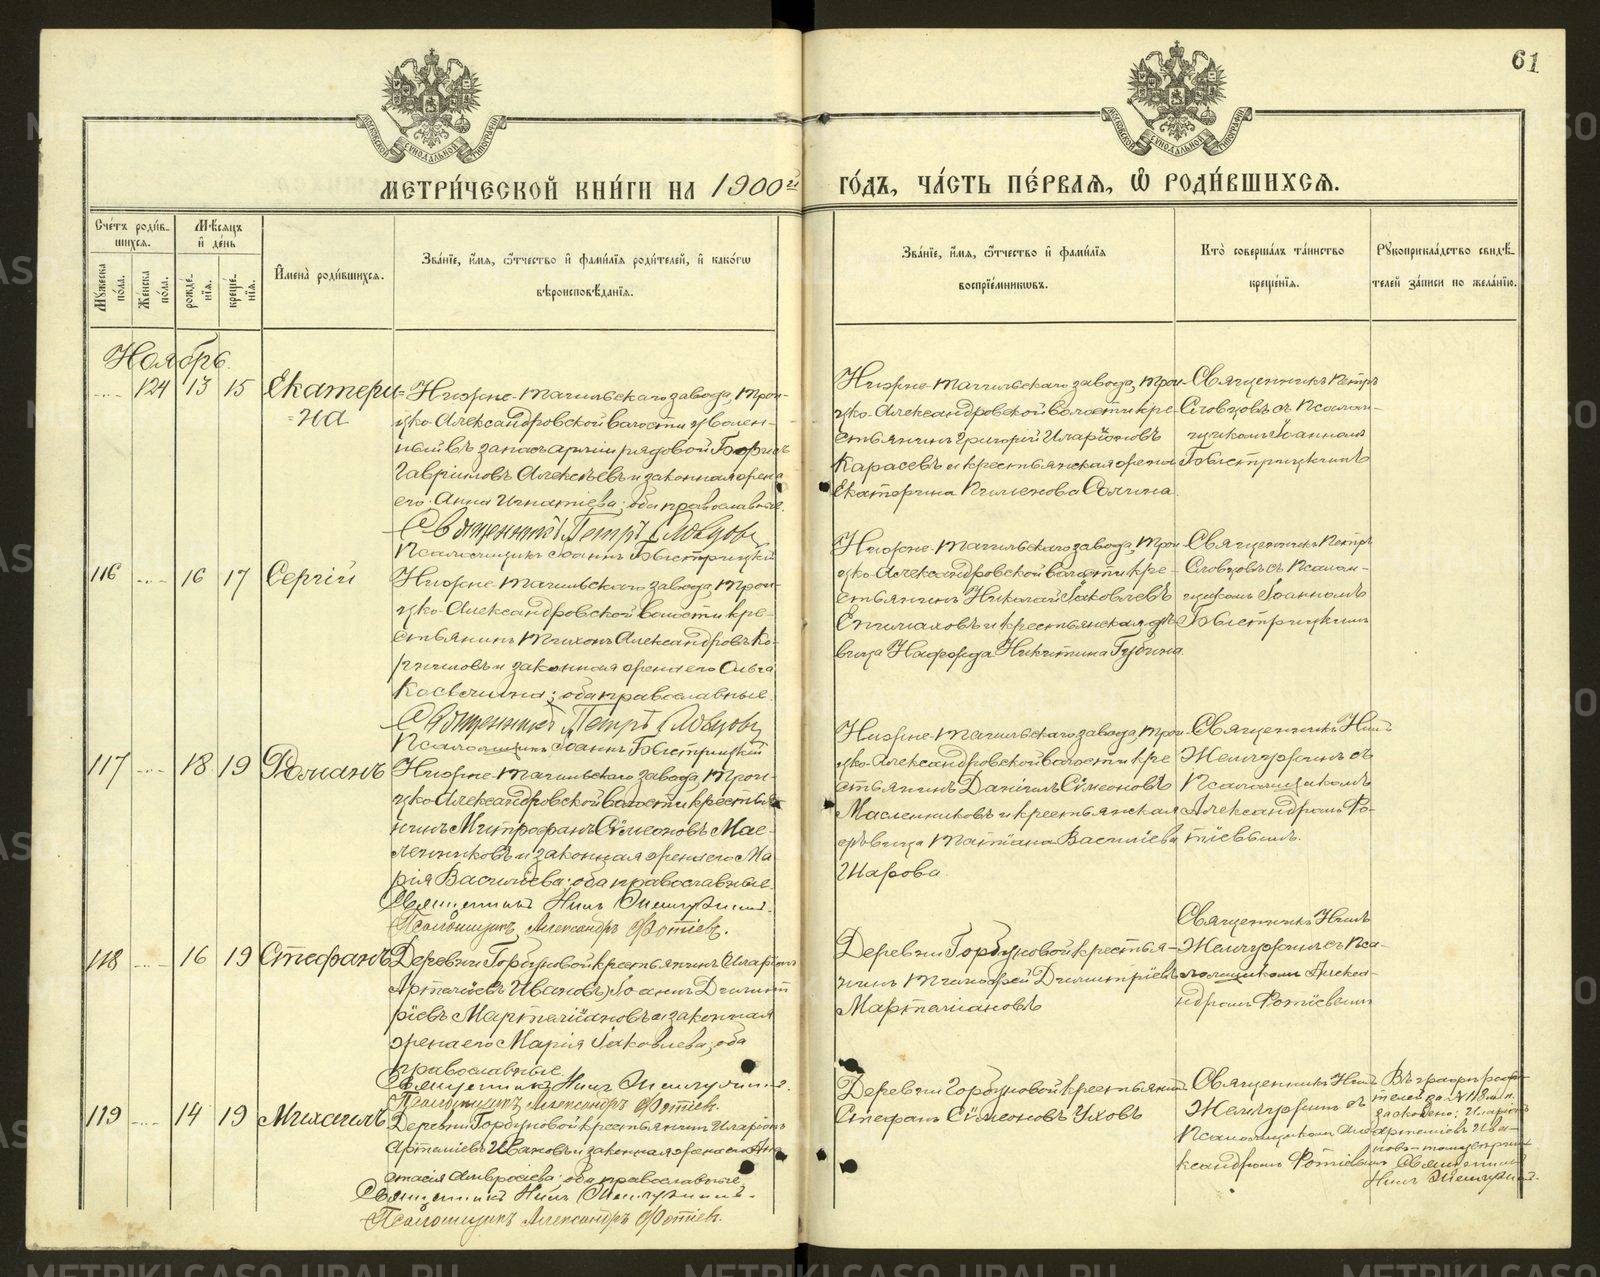 61
МЕТРИ́ЧЕСКОЙ КНИ́ГИ НА 1900й ГО́ДЪ, ЧА́СТЬ ПЕ́РВАЯ, Ѽ РОДИ́ВШИХСЯ.
Сче́тъ роди́в-
шихся.
Му́жеска по́ла.
Же́нска по́ла.
Мѣ́сяцъ
и҆ де́нь
рожде́-
нїя.
креще́-
нїя.
И҆мена̀ роди́вшихся.
Зва́нїе, и҆́мя, ѻ҆́тчество и҆ фами́лїя роди́телей, и҆ како́гѡ
вѣроисповѣ́данїя.
Зва́нїе, и҆́мя, ѻ҆́тчество и҆ фами́лїя
воспрїе́мникѡвъ.
Кто̀ соверша́лъ та́инство
креще́нїя.
Рꙋкоприкла́дство свидѣ́-
телей за́писи по жела́нїю.
Ноябрь.
124 13 15 Екатери=
=на
Нижне-Тагильскаго завода, Трои-
цко-Александровской волости уволен-
ный въ запасъ арміи рядовой Борисъ
Гавріиловъ Алексѣевъ и законная жена
его Анна Игнатіева; оба православные.
Священникъ Петръ Словцовъ
Псаломщикъ Іоаннъ Быстрицкій
Нижне-Тагильскаго завода, Трои-
цко-Александровской волости кре-
стьянинъ Григорій Иларіоновъ
Карасевъ и крестьянская жена
Екатерина Пименова
Священникъ Петръ
Словцовъ съ Псалом-
щикомъ Іоанномъ
Быстрицкимъ
116 16 17 Сергій
Нижне-Тагильскаго завода, Трои-
цко-Александровской волости кре-
стьянинъ Тихонъ Александровъ Ко-
и законная жена его Ольга
оба православные.
Священникъ Петръ Словцовъ
Псаломщикъ Іоаннъ Быстрицкій
Нижне-Тагильскаго завода, Трои-
цко-Александровской волости кре-
стьянинъ Николай Іаковлевъ
Епимаховъ и крестьянская дѣ-
вица Никитина Губина.
Священникъ Петръ
Словцовъ съ Псалом-
щикомъ Іоанномъ
Быстрицкимъ
117 18 19 Романъ
Нижне-Тагильскаго завода, Трои-
цко-Александровской волости крестья-
нинъ Митрофанъ Сѵмеоновъ Мас-
ленниковъ и законная жена его Ма-
рія Васильева; оба православные.
Священникъ Нилъ Жемчужинъ.
Псаломщикъ Александръ Фотіев.
Нижне-Тагильскаго завода, Трои-
цко-Александровской волости кре
стьянинъ Даніилъ Сѵмеоновъ
Масленниковъ и крестьянская
дѣвица Татіана Василіева
Шарова.
Священникъ Нилъ
Жемчужинъ съ
Псаломщикомъ
Александромъ Фо-
тіевымъ.
118 16 19 Стефанъ
Деревни Горбуновой крестьянинъ Иларіонъ
Артеміевъ Ивановъ) Іоаннъ Димит
ріевъ и законная
жена его Марія Іаковлева; оба
православные.
Священникъ Нилъ Жемчужинъ.
Псаломщикъ Александръ Фотіев.
Деревни Горбуновой крестья-
нинъ Тимофей Димитріевъ
Священникъ Нилъ
Жемчужинъ съ Пса-
ломщикомъ Алекса-
ндромъ Фотіевымъ
119 14 19 Михаилъ
Деревни Горбуновой крестьянинъ Иларіонъ
Артеміевъ Ивановъ и законная жена его Ана-
стасія Амвросіева; оба православные.
Священникъ Нилъ Жемчужинъ.
Псаломщикъ Александръ Фотіев.
Деревни Горбуновой крестьянинъ
Стефанъ Сѵмеоновъ Уховъ
Священникъ Нилъ
Жемчужинъ съ
Псаломщикомъ Але-
ксандромъ Фотіевымъ
Въ графѣ роди-
телей за № 118 м.п.
Иларіонъ
Артеміевъ Ива-
новъ
Священникъ
Нилъ Жемчужинъ.
METRIKI.CASO-URAL.RU